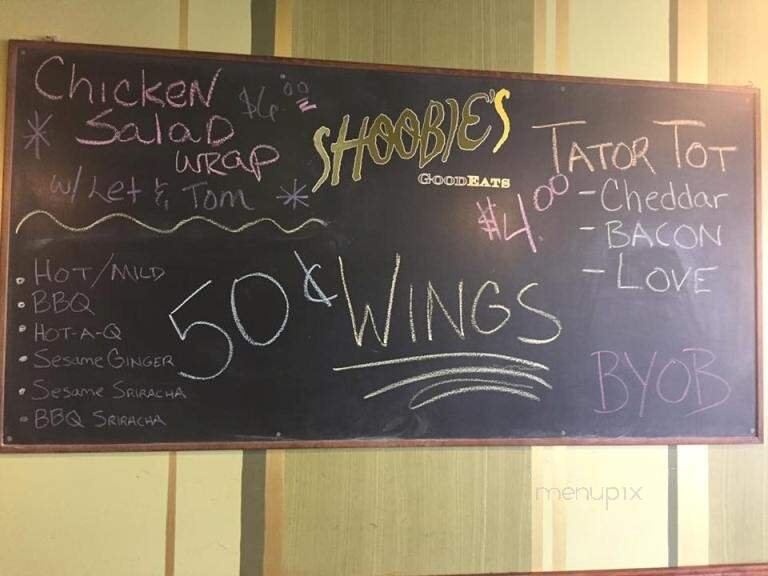 Chicken $6.00
Salad
wrap
w/ Let & Tom
SHOOBIE'S
GOODEATS
TATOR TOT
$4.00
- Cheddar
- BACON
- LOVE
50¢ WINGS
• HOT/MILD
• BBQ
• HOT-A-Q
• Sesame GINGER
• Sesame SRIRACHA
• BBQ SRIRACHA
BYOB
menupix